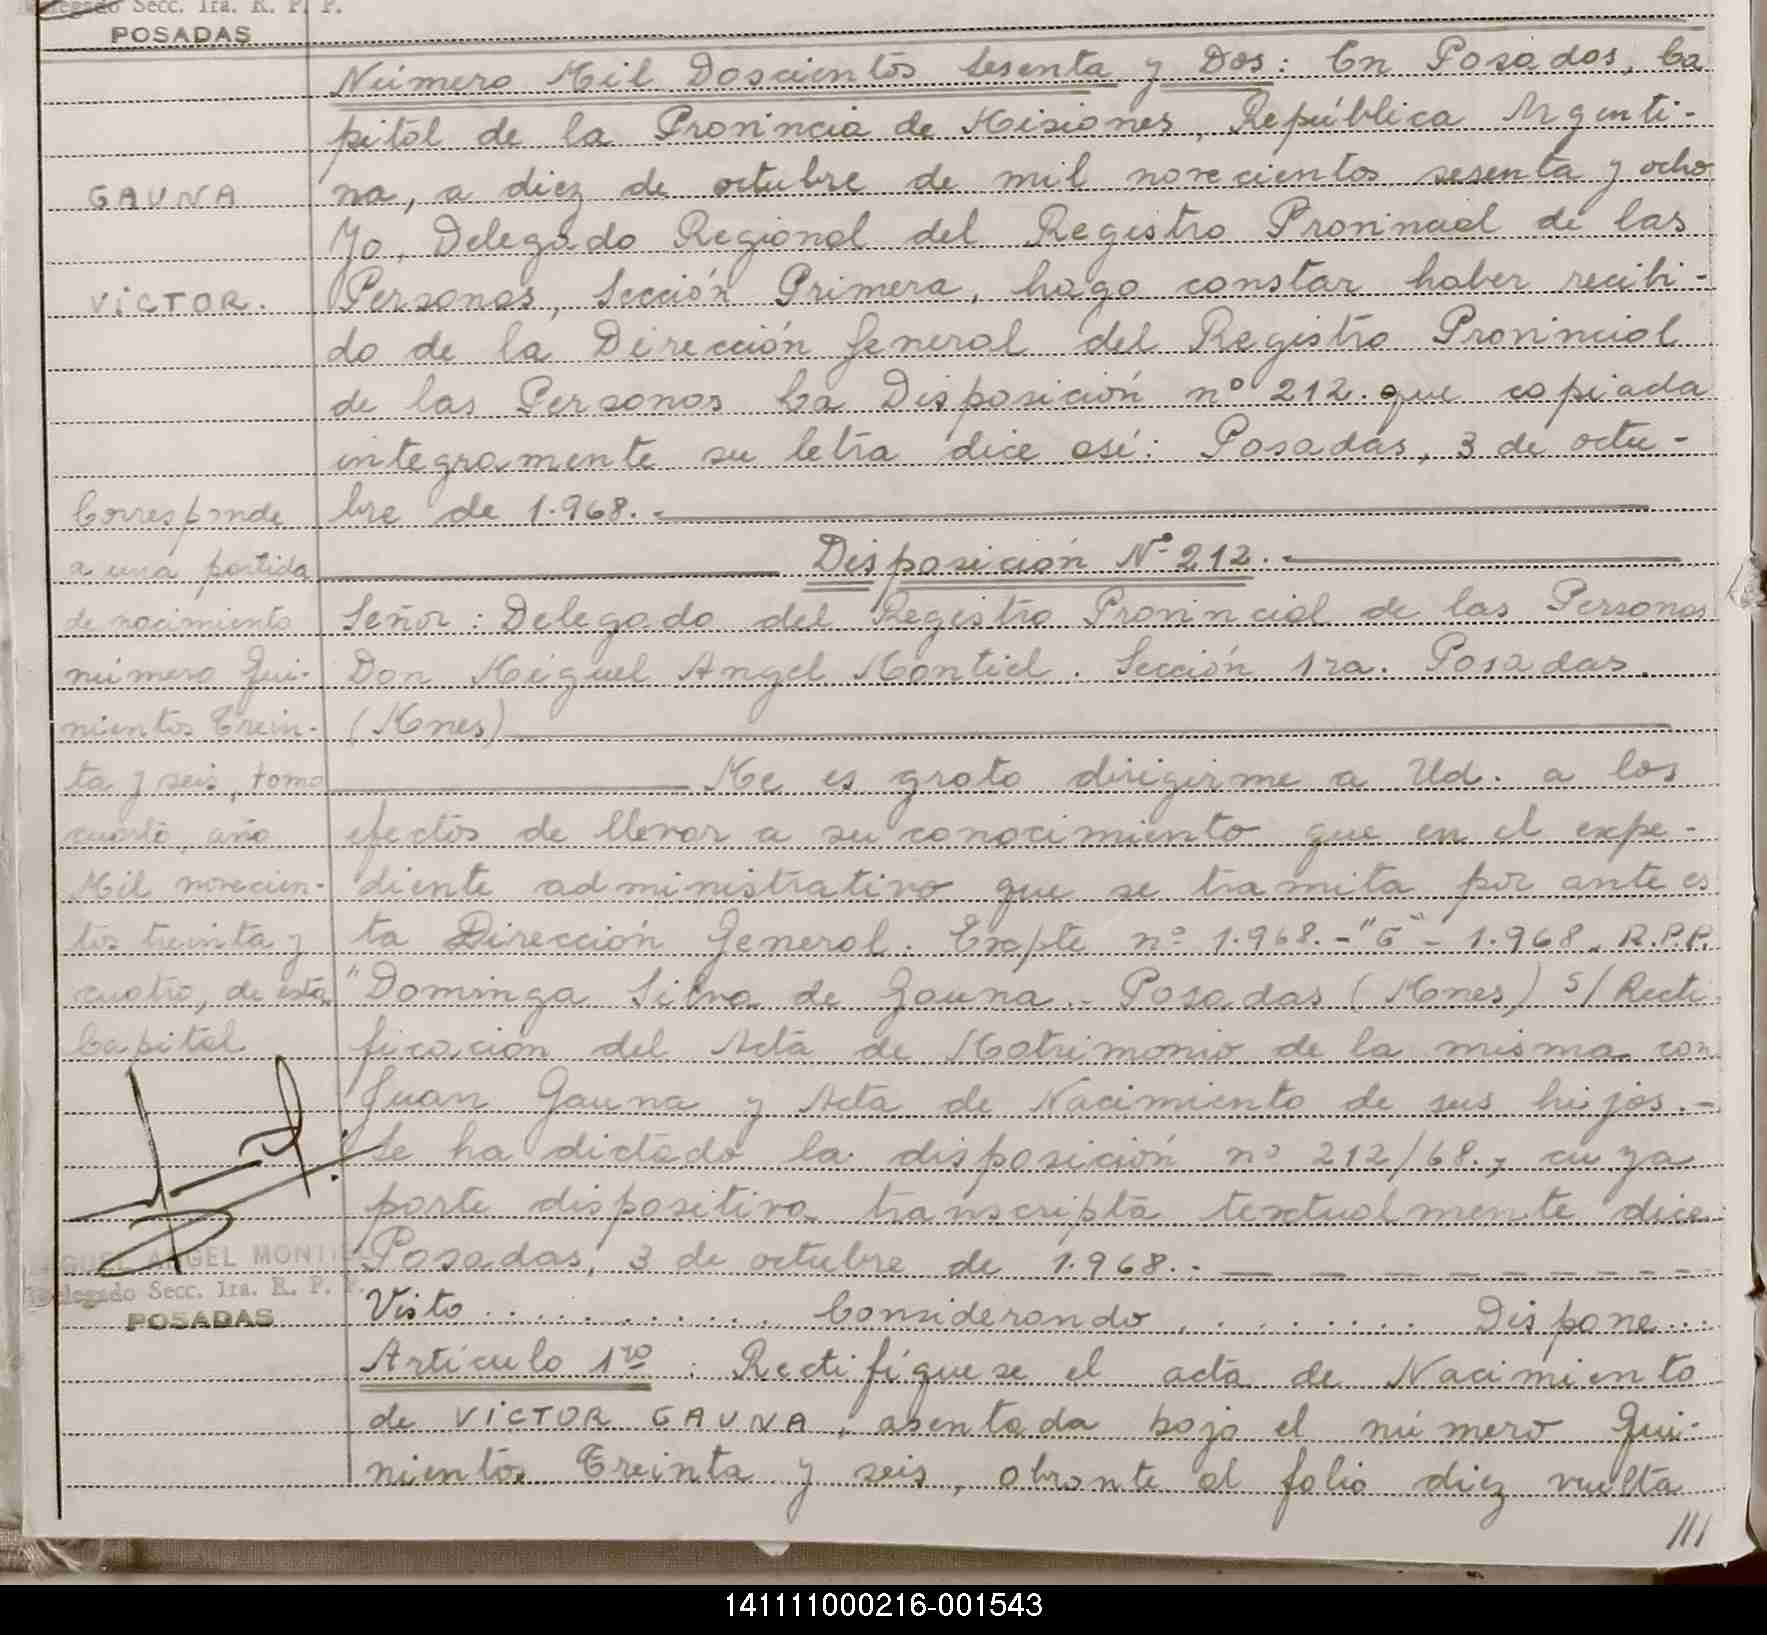 Delegado Secc. 1ra. R. P. P.
POSADAS
Número Mil Doscientos Sesenta y Dos: En Posadas, Ca
pital de la Provincia de Misiones, República Argenti-
GAUNA
na, a diez de octubre de mil novecientos sesenta y ocho
Yo, Delegado Regional del Registro Provincial de las
VÍCTOR.
Personas, Sección Primera, hago constar haber recibi-
do de la Dirección General del Registro Provincial
de las Personas la Disposición nº 212. que copiada
integramente su letra dice así: Posadas, 3 de octu-
bre de 1.968.-
Disposición Nº 212.-
Señor: Delegado del Registro Provincial de las Personas
Don Miguel Angel Montiel. Sección 1ra. Posadas.
(Mnes)
Me es grato dirigirme a Ud. a los
efectos de llevar a su conocimiento que en el expe-
diente administrativo que se tramita por ante es
ta Dirección General. Expte nº 1.968.-"G"- 1.968. R.P.P.
"Dominga Silva de Gauna.- Posadas (Mnes) S/Recti
ficación del Acta de Matrimonio de la misma con
Juan Gauna y Acta de Nacimiento de sus hijos.-
Se ha dictado la disposición nº 212/68., cuya
parte dispositiva transcripta textualmente dice:
Posadas, 3 de octubre de 1.968.-
Visto........... Considerando......... Dispone...
Artículo 1ro: Rectifíquese el acta de Nacimiento
de VÍCTOR GAUNA, asentada bajo el número Qui-
nientos Treinta y seis, obrante al folio diez vuelta
///
Corresponde
a una partida
de nacimiento
número Qui-
nientos Trein-
ta y seis, tomo
cuarto, año
Mil novecien-
tos treinta y
cuatro, de esta
Capital
MIGUEL ANGEL MONTIEL
Delegado Secc. 1ra. R. P. P.
POSADAS
141111000216-001543